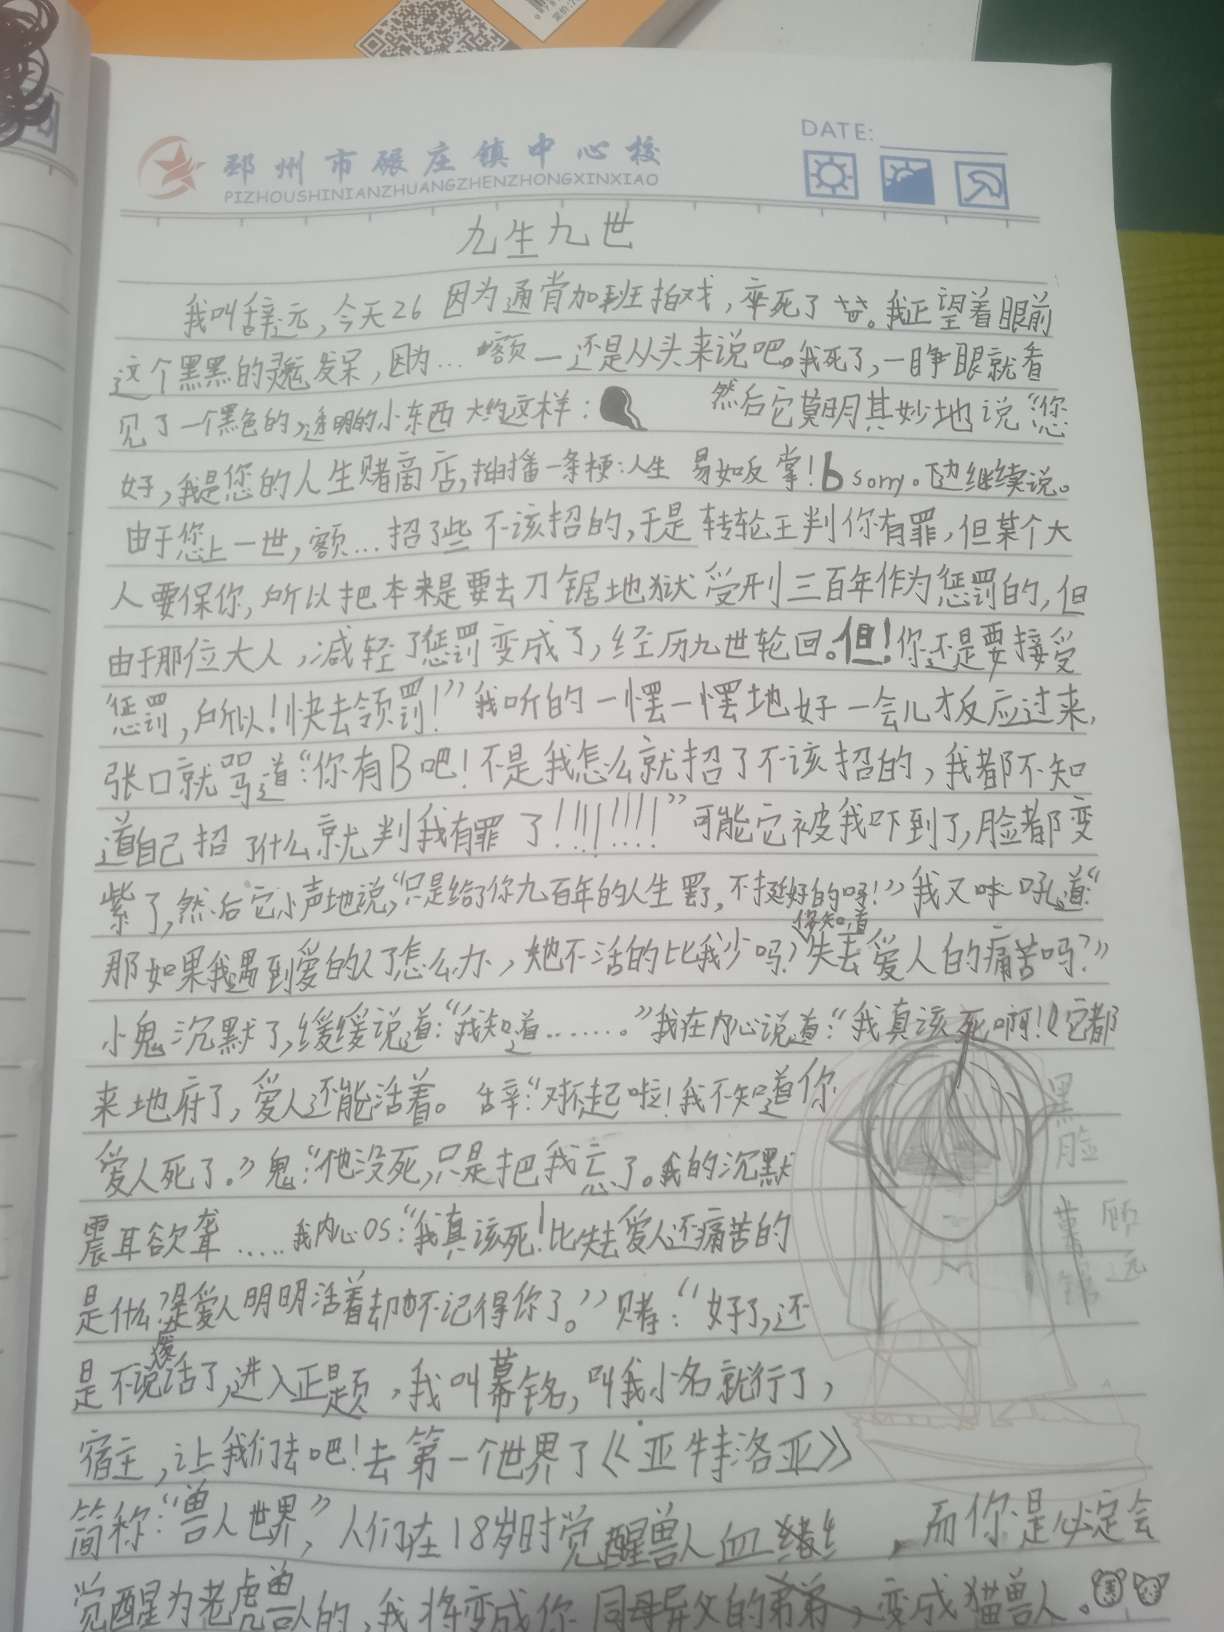 DATE:
邳州市碾庄镇中心校
PIZHOUSHINIANZHUANGZHENZHONGXINXIAO
九生九世
我叫辞远，今天26 因为通宵加班拍戏，卒死了。我正望着眼前
这个黑黑的发呆，因为… 额—还是从头来说吧。我死了，一睁眼就看
见了一个黑色的，透明的小东西大约这样： 然后它莫明其妙地说“您
好，我是您的人生赌商店，插播一条梗：人生 易如反掌！b sorry。继续说。
由于您上一世，额…招了些不该招的，于是转轮王判你有罪，但某个大
人要保你，所以把本来是要去刀锯地狱受刑三百年作为惩罚的，但
由于那位大人，减轻了惩罚变成了，经历九世轮回。但！你还是要接受
惩罚，所以！快去领罚！”我听的一愣一愣地好一会儿才反应过来，
张口就骂道：“你有B吧！不是我怎么就招了不该招的，我都不知
道自己招了什么就判我有罪了！！！！！！！！”可能它被我吓到了，脸都变
紫了，然后它小声地说，“只是给了你九百年的人生罢了，不挺好的呀！”我又咔吼道：“
那如果我遇到爱的人了怎么办，她不活的比我少吗？你知道失去爱人的痛苦吗？”
小鬼沉默了，缓缓说道：“我知道……。”我在内心说道：“我真该死啊！（它都
来地府了，爱人还能活着。 辞“对不起啦！我不知道你
爱人死了。”鬼：“他没死，只是把我忘了。我的沉默
震耳欲聋……我内心OS：“我真该死！比失去爱人还痛苦的
是什么？是爱人明明活着却不记得你了。”赌：“好了，还
是不说废话了，进入正题，我叫幕铭，叫我小名就行了，
宿主，让我们去吧！去第一个世界了《亚特洛亚》
简称：“兽人世界”，人们在18岁时觉醒兽人血，而你是必定会
觉醒为老虎兽人的，我将变成你同母异父的弟弟，变成猫兽人。
黑脸
顾远